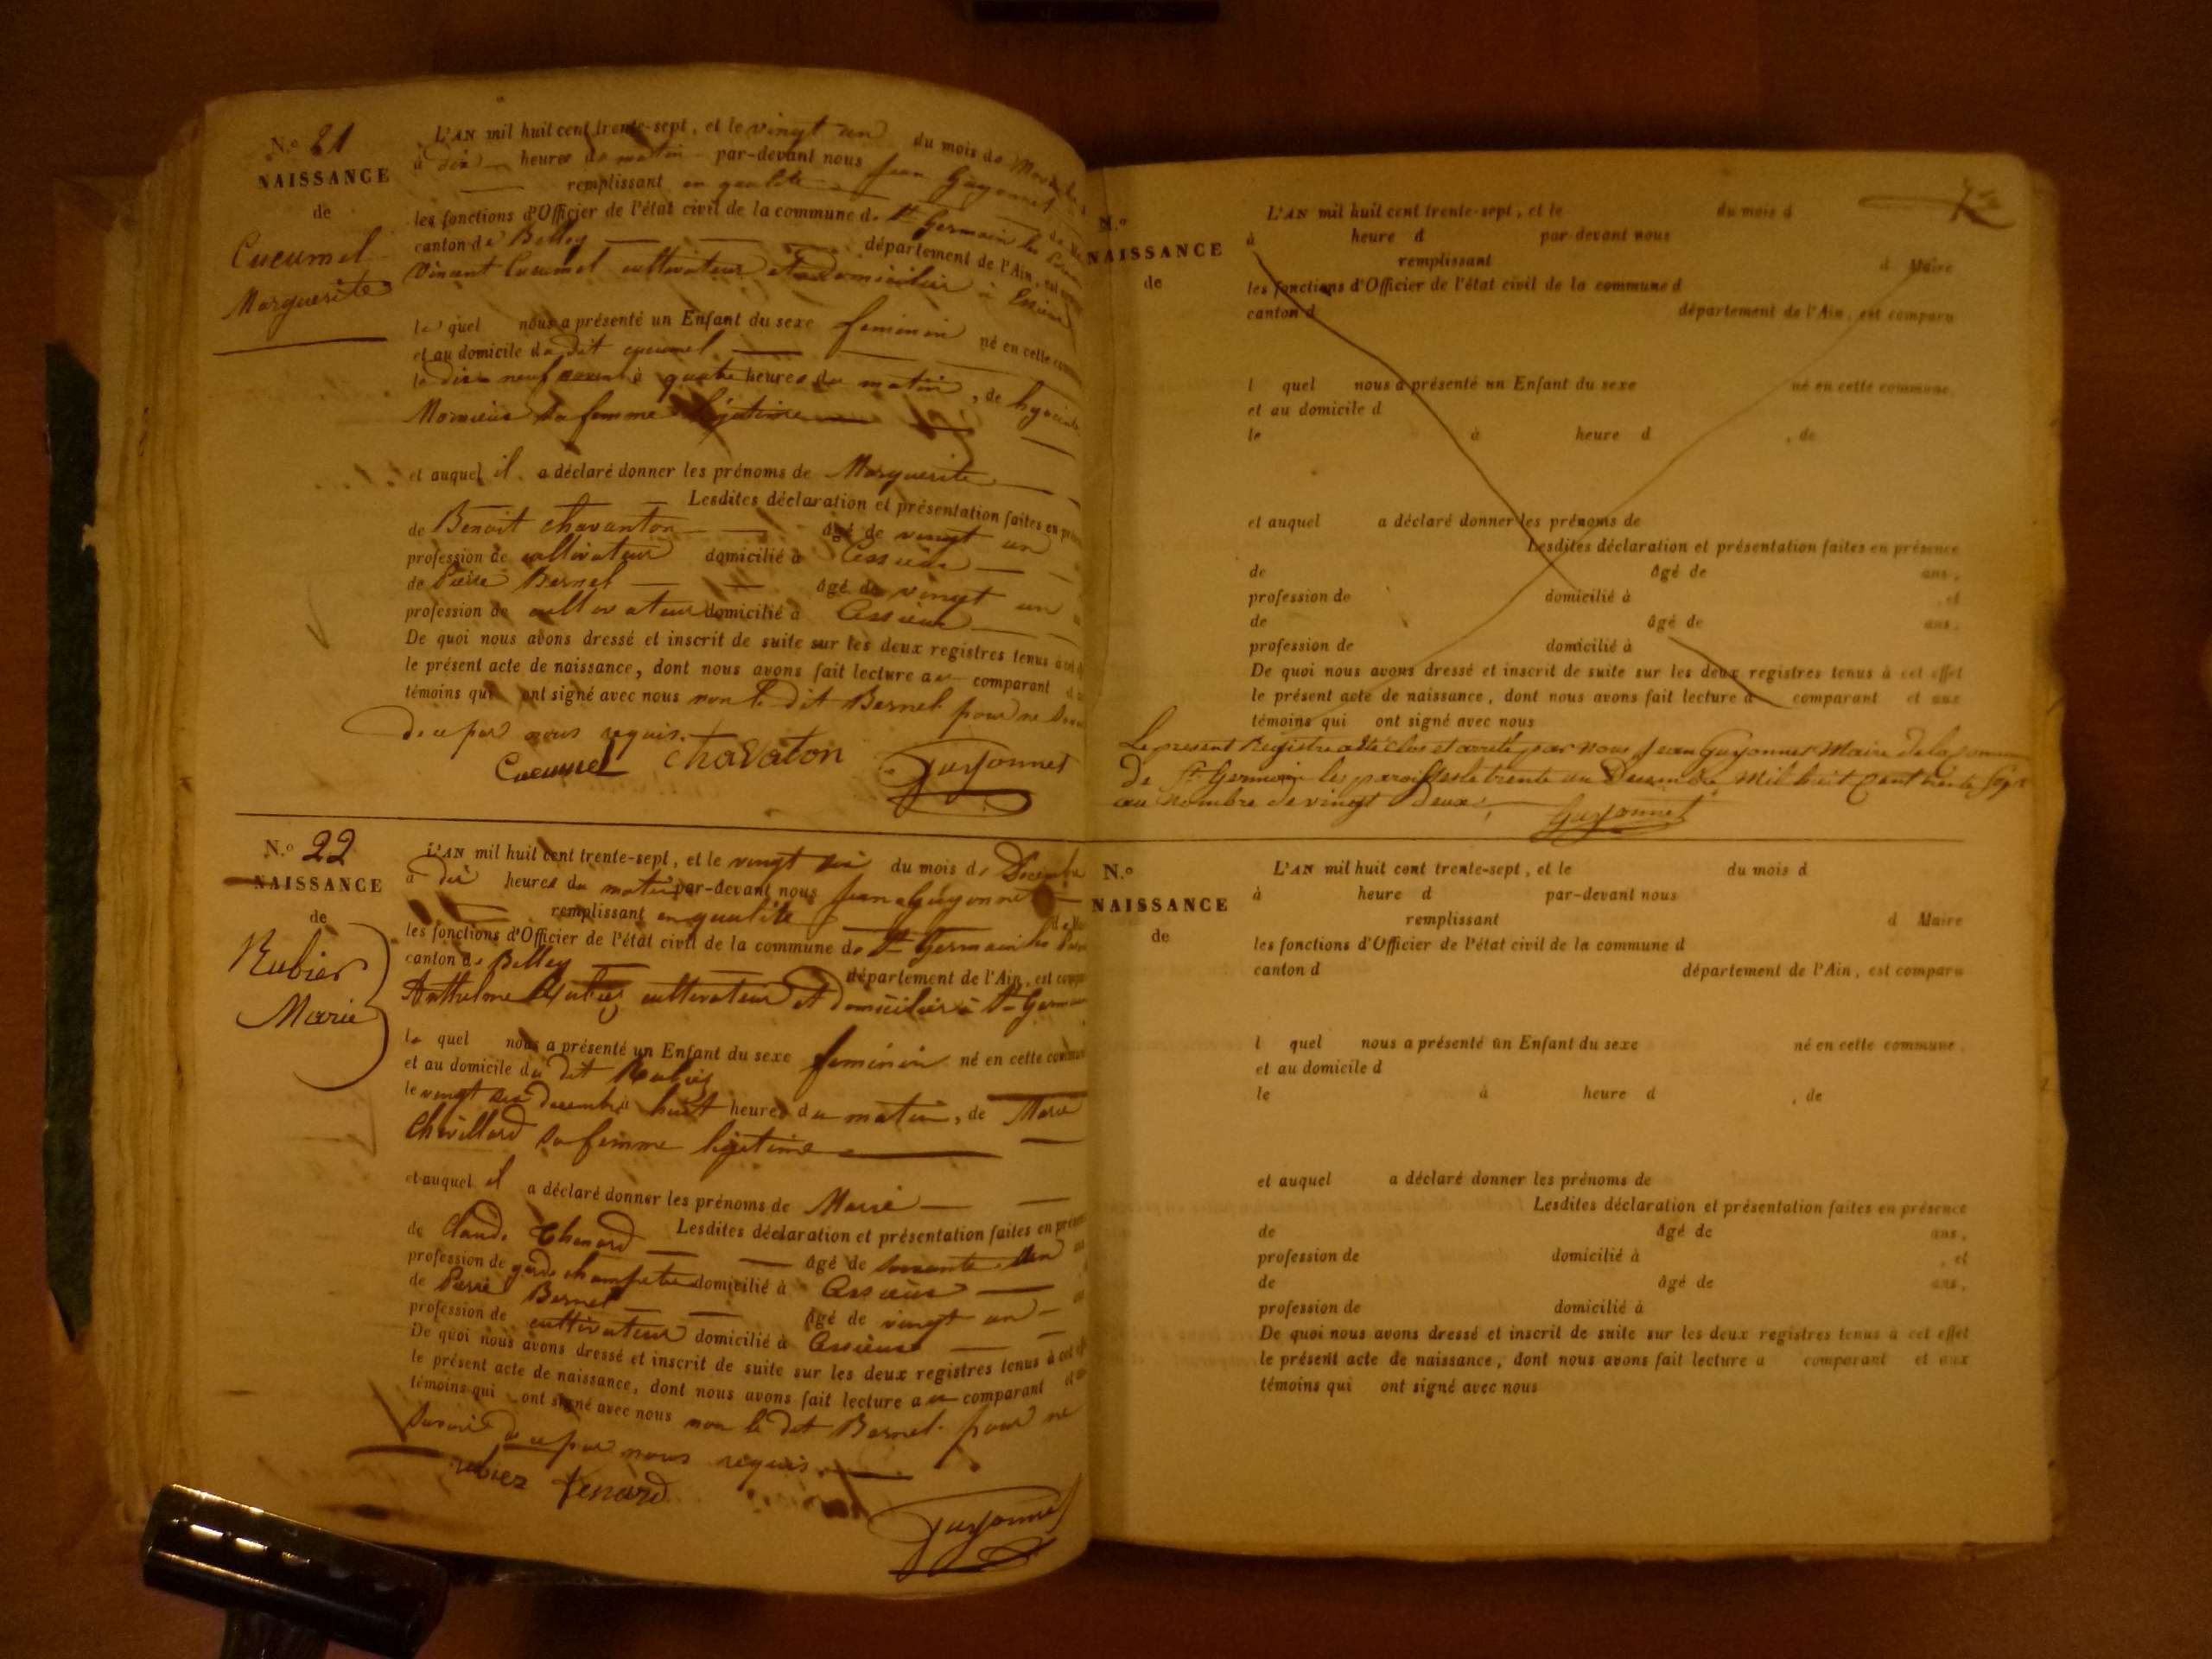 N.° 21
NAISSANCE
de
Cucumel
Marguerite
L'AN mil huit cent trente-sept, et le vingt un du mois de
à dix heures du matin par-devant nous Jean Guyonnet
remplissant en qualité
les fonctions d'Officier de l'état civil de la commune de St Germain les
canton de Belley département de l'Ain, est
Vincent Cucumel cultivateur et domicilier à Essieux
le quel nous a présenté un Enfant du sexe feminin né en cette
et au domicile du dit cucumel
le dix neuf à quatre heures du matin, de
sa femme légitime
et auquel il a déclaré donner les prénoms de Marguerite
Lesdites déclaration et présentation faites en
de Benoit chavanton âgé de vingt un
profession de cultivateur domicilié à Essieux
de Pierre Bernet âgé de vingt un
profession de cultivateur domicilié à Essieux
De quoi nous avons dressé et inscrit de suite sur les deux registres tenus à cet
le présent acte de naissance, dont nous avons fait lecture au comparant
témoins qui ont signé avec nous non le dit Bernet pour ne
de ce par nous requis.
Cucumel chavaton Guyonnet
N.° 22
NAISSANCE
de
Rubier
Marie
L'AN mil huit cent trente-sept, et le vingt six du mois de Décembre
à dix heures du matin par-devant nous Jean Guyonnet
remplissant en qualité
les fonctions d'Officier de l'état civil de la commune de St Germain les
canton de Belley département de l'Ain, est
Anthelme Rubiez cultivateur et domicilier à St Germain
le quel nous a présenté un Enfant du sexe feminin né en cette
et au domicile du dit Rubiez
le vingt six decembre à huit heures du matin, de Marie
Chevillard sa femme légitime
et auquel il a déclaré donner les prénoms de Marie
Lesdites déclaration et présentation faites en
de Claude Thenard âgé de soixante
profession de garde champetre domicilié à Essieux
de Pierre Bernet âgé de vingt un
profession de cultivateur domicilié à Essieux
De quoi nous avons dressé et inscrit de suite sur les deux registres tenus à cet
le présent acte de naissance, dont nous avons fait lecture au comparant
témoins qui ont signé avec nous non le dit Bernet pour ne
de ce par nous requis.
rubiez tenard
Guyonnet
N.°
NAISSANCE
de
L'AN mil huit cent trente-sept, et le du mois d
à heure d par-devant nous
remplissant d Maire
les fonctions d'Officier de l'état civil de la commune d
canton d département de l'Ain, est comparu
l quel nous a présenté un Enfant du sexe né en cette commune,
et au domicile d
le à heure d , de
et auquel a déclaré donner les prénoms de
Lesdites déclaration et présentation faites en présence
de âgé de ans,
profession de domicilié à , et
de âgé de ans.
profession de domicilié à
De quoi nous avons dressé et inscrit de suite sur les deux registres tenus à cet effet
le présent acte de naissance, dont nous avons fait lecture a comparant et aux
témoins qui ont signé avec nous
Le present Registre a été clos et arreté par nous Jean Guyonnet Maire de la
de St Germain les paroisses le trente un Decembre mil huit cent trente sept
au nombre de vingt deux
Guyonnet
N.°
NAISSANCE
de
L'AN mil huit cent trente-sept, et le du mois d
à heure d par-devant nous
remplissant d Maire
les fonctions d'Officier de l'état civil de la commune d
canton d département de l'Ain, est comparu
l quel nous a présenté un Enfant du sexe né en cette commune,
et au domicile d
le à heure d , de
et auquel a déclaré donner les prénoms de
Lesdites déclaration et présentation faites en présence
de âgé de ans,
profession de domicilié à , et
de âgé de ans,
profession de domicilié à
De quoi nous avons dressé et inscrit de suite sur les deux registres tenus à cet effet
le présent acte de naissance, dont nous avons fait lecture a comparant et aux
témoins qui ont signé avec nous